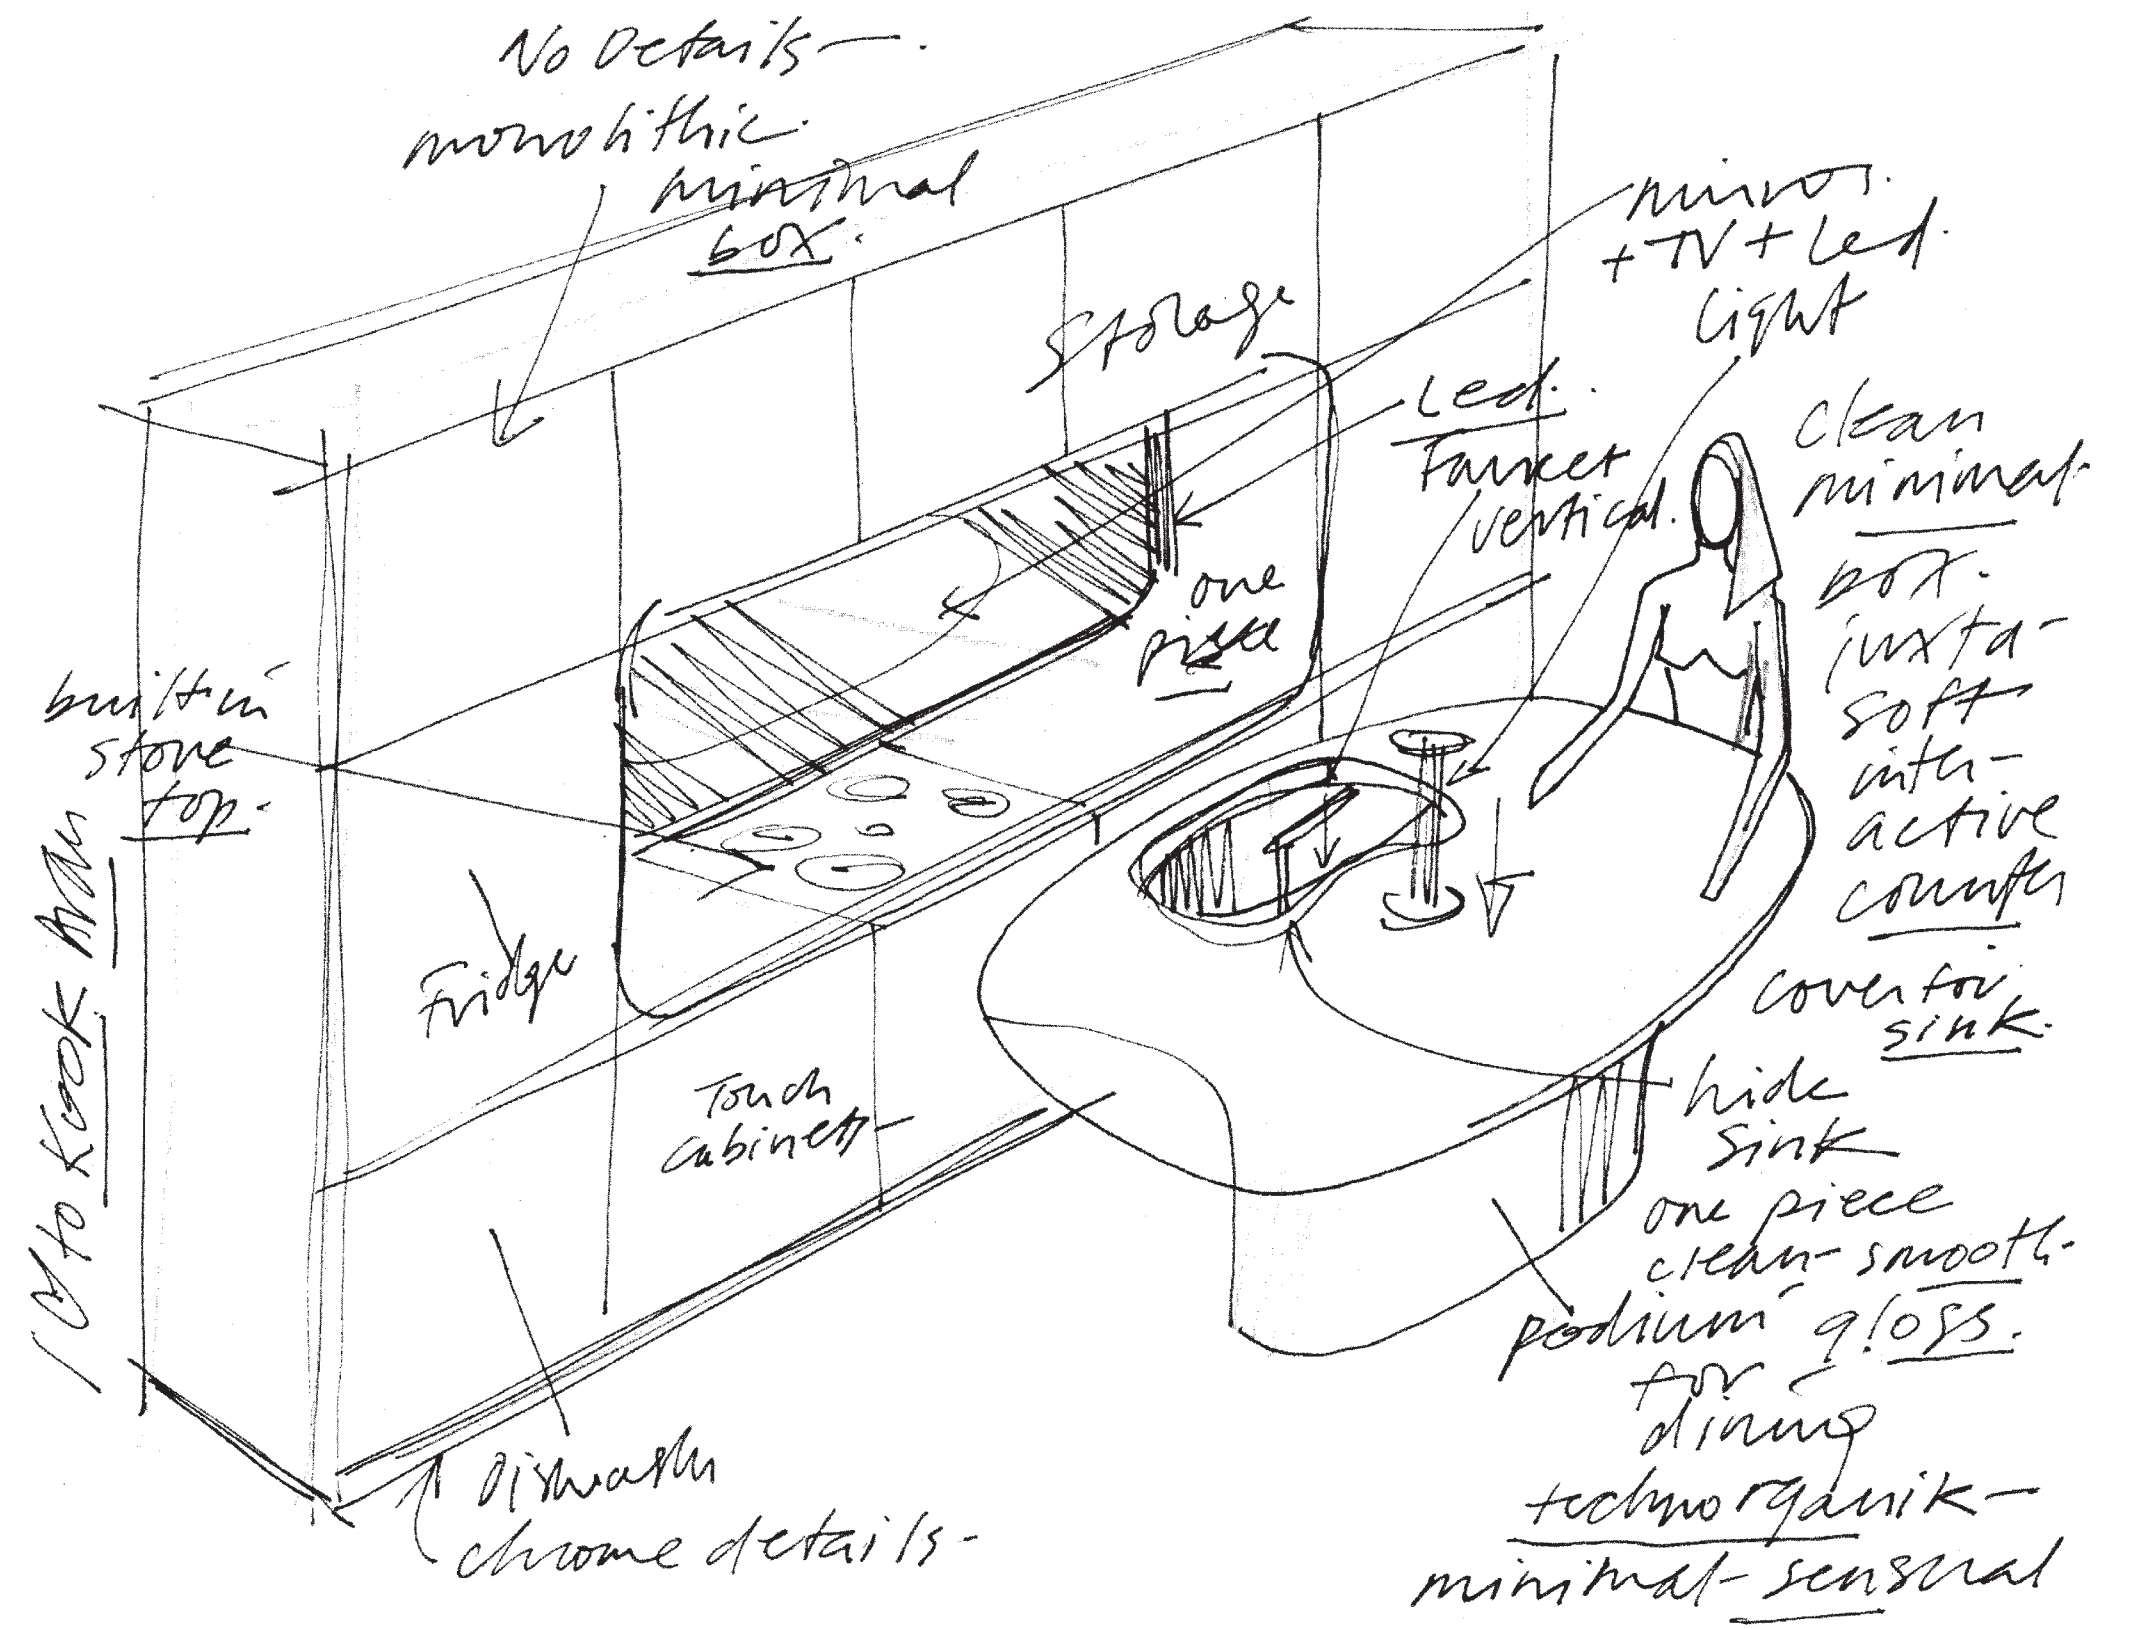 No Details—.
monolithic.
minimal
box.
Storage
mirror.
+ TV + Led.
Light
Led.
Faucet
vertical.
one
piece
clean
minimal.
box.
juxta-
soft
inter-
active
counter
built-in
stove
top.
Fridge
Touch
cabinets
cover for
sink.
hide
sink
one piece
clean-smooth.
gloss.
podium
for
dining
technorganik-
minimal-sensual
Dishwasher
chrome details-
to Kook Aran